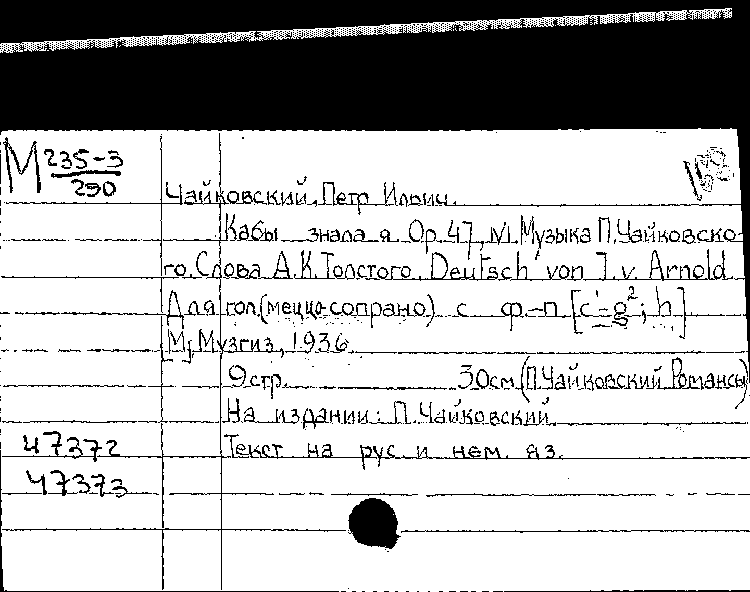 М 235-3
290
Чайковский, Петр Ильич.
Кабы знала я. Ор. 47, №1. Музыка П. Чайковско-
го. Слова А.К. Толстого. Deutsch von J. v. Arnold
Для гол. (меццо-сопрано) с ф-п [c'-g²; h]
[М.], Музгиз, 1936.
9 стр. 30см (П. Чайковский. Романсы)
На издании: П. Чайковский.
47372 Текст на рус. и нем. яз.
47373